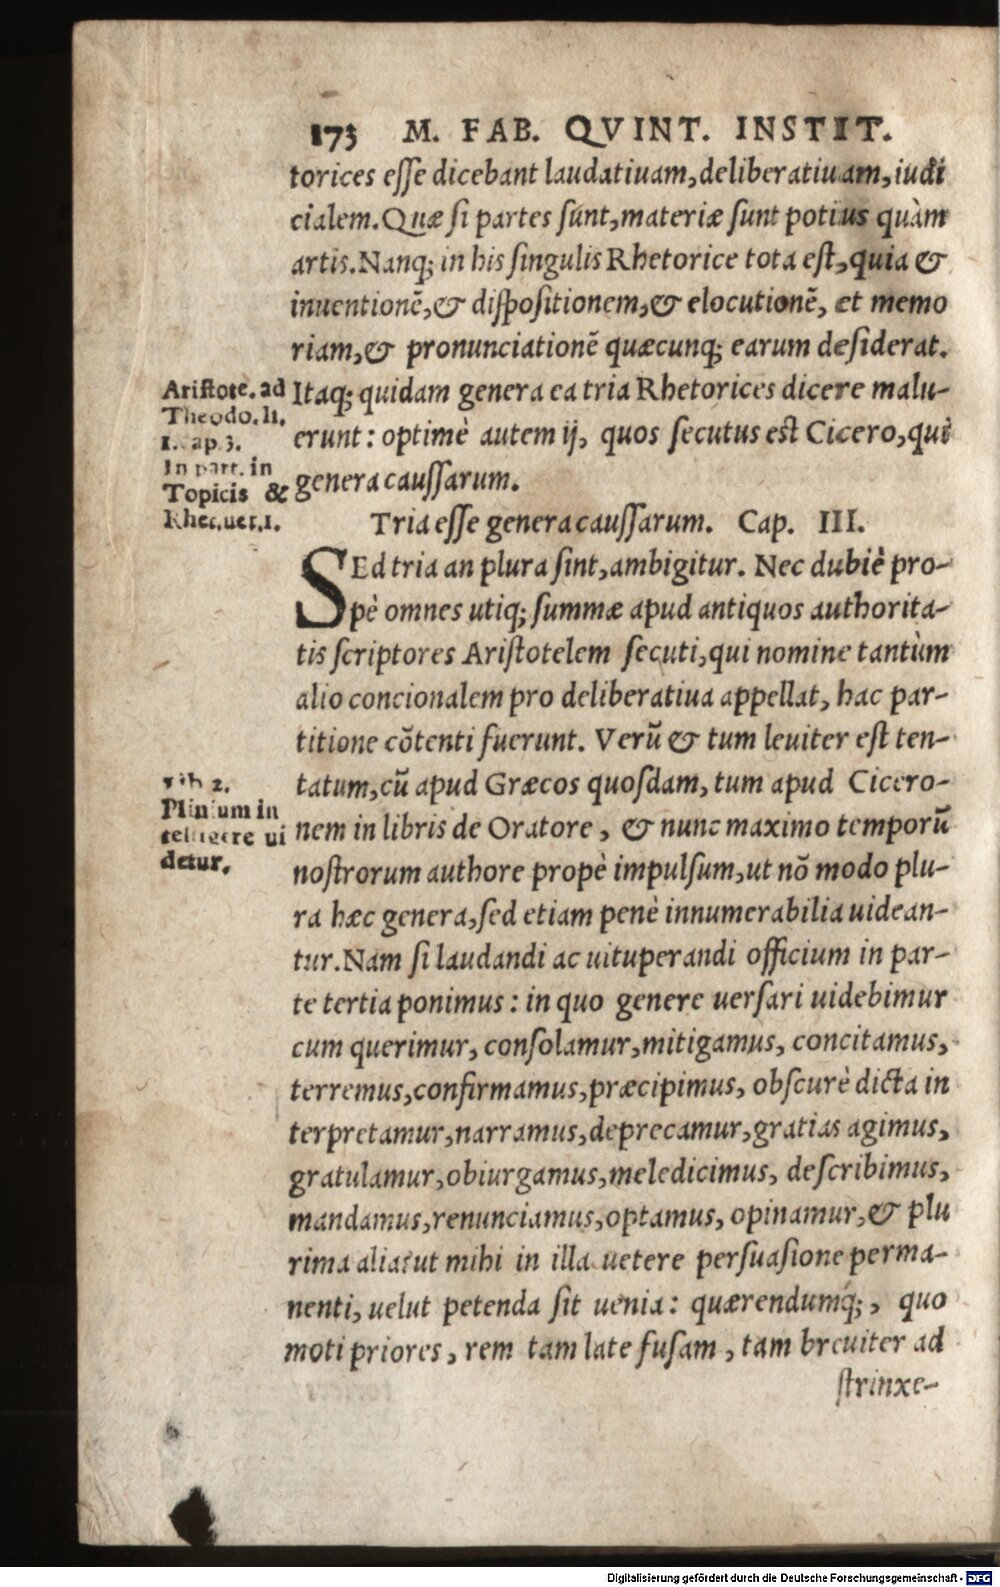 173 M. FAB. QVINT. INSTIT.
torices eſſe dicebant laudatiuam, deliberatiuam, iudi
cialem. Quæ ſi partes ſunt, materiæ ſunt potius quàm
artis. Nanq; in his ſingulis Rhetorice tota eſt, quia &
inuentionē, & diſpoſitionem, & elocutionē, et memo
riam, & pronunciationē quæcunq; earum deſiderat.
Itaq; quidam genera ea tria Rhetorices dicere malu-
erunt: optimè autem ij, quos ſecutus eſt Cicero, qui
genera cauſſarum.
Ariſtote. ad
Theodo. li.
1. cap. 3.
In part. in
Topicis &
Rhet. uet. 1.
Tria eſſe genera cauſſarum. Cap. III.
SEd tria an plura ſint, ambigitur. Nec dubiè pro-
pè omnes utiq; ſummæ apud antiquos authorita-
tis ſcriptores Ariſtotelem ſecuti, qui nomine tantùm
alio concionalem pro deliberatiua appellat, hac par-
titione cōtenti fuerunt. Verū & tum leuiter eſt ten-
tatum, cū apud Græcos quoſdam, tum apud Cicero-
nem in libris de Oratore, & nunc maximo temporū
noſtrorum authore propè impulſum, ut nō modo plu-
ra hæc genera, ſed etiam penè innumerabilia uidean-
tur. Nam ſi laudandi ac uituperandi officium in par-
te tertia ponimus: in quo genere uerſari uidebimur
cum querimur, conſolamur, mitigamus, concitamus,
terremus, confirmamus, præcipimus, obſcurè dicta in
terpretamur, narramus, deprecamur, gratias agimus,
gratulamur, obiurgamus, meledicimus, deſcribimus,
mandamus, renunciamus, optamus, opinamur, & plu
rima alia: ut mihi in illa uetere perſuaſione perma-
nenti, uelut petenda ſit uenia: quærendumq́;, quo
moti priores, rem tam late fuſam, tam breuiter ad
ſtrinxe-
Lib 2.
Plinium in
telligere ui
detur.
Digitalisierung gefördert durch die Deutsche Forschungsgemeinschaft - DFG